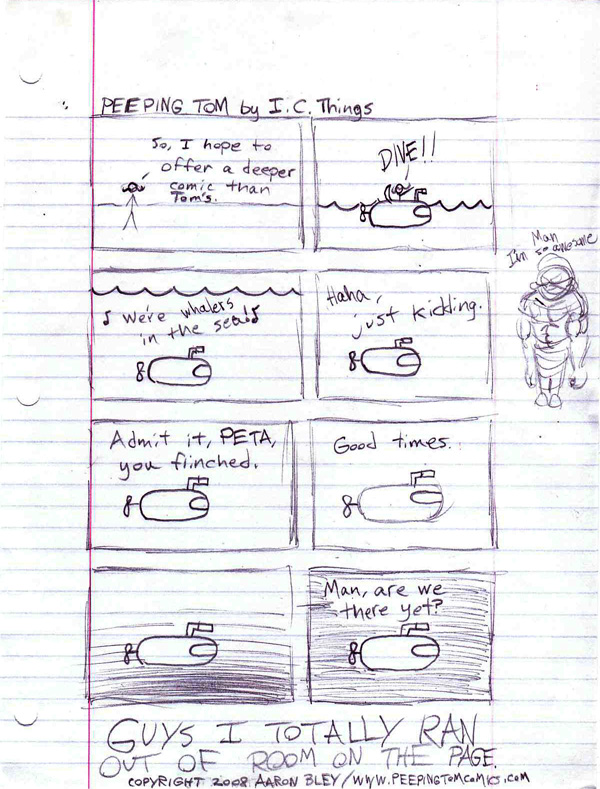 PEEPING TOM by I.C. Things
So, I hope to
offer a deeper
comic than
Tom's.
DIVE!!
♪ We're whalers
in the sea! ♪
Haha,
just kidding.
Man
I'm so awesome
Admit it, PETA,
you flinched.
Good times.
Man, are we
there yet?
GUYS I TOTALLY RAN
OUT OF ROOM ON THE PAGE.
COPYRIGHT 2008 AARON BLEY/WWW.PEEPINGTOMCOMICS.COM